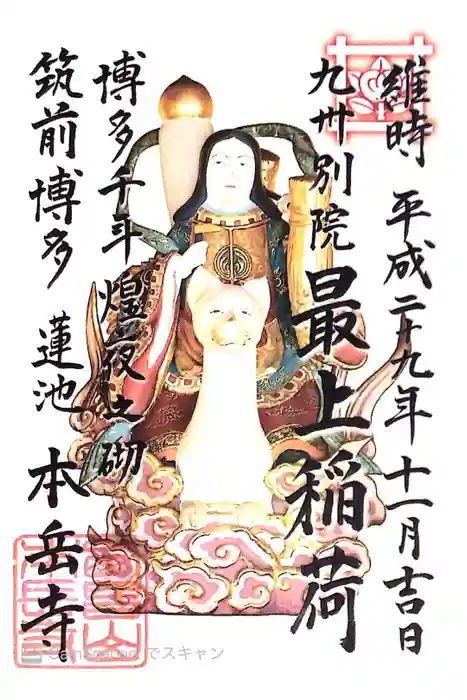 維時 平成二十九年十一月吉日
九州別院 最上稲荷
博多千年煌夜之砌
筑前博多 蓮池 本岳寺
でスキャン